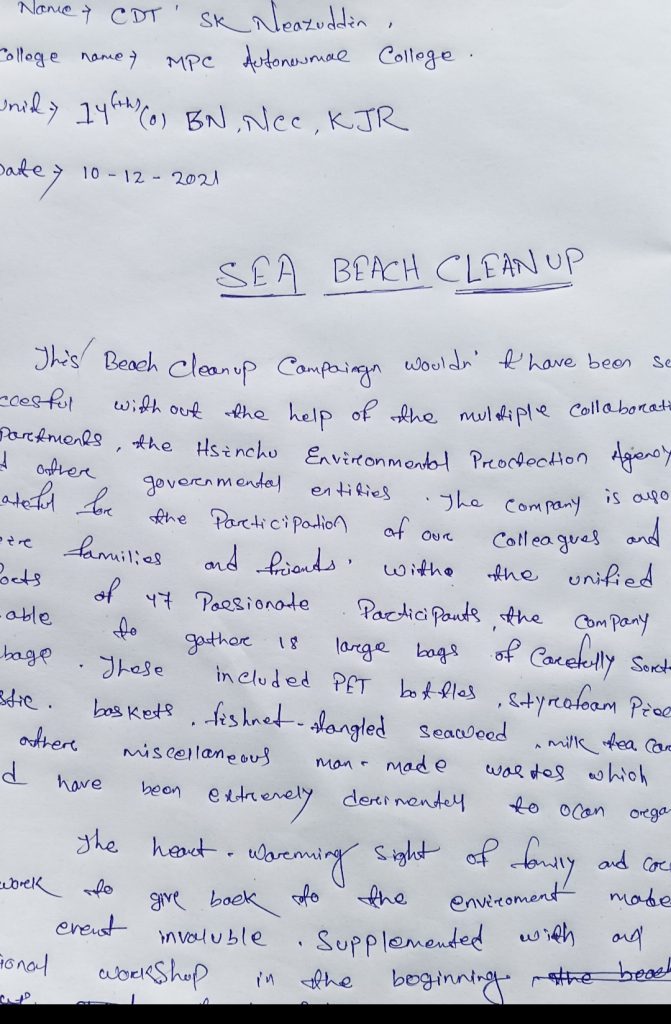 Name → CDT' SK Neazuddin,
College name → MPC Autonoumae College.
Unit → 14(th) (o) BN, Ncc, KJR
Date → 10-12-2021
SEA BEACH CLEANUP
This Beach Cleanup Campaingn wouldn't have been su
ccesful without the help of the multiple Collaborati
Partments, the Hsinchu Environmental Proctection Agency
d othere governmental entities. The company is also
ateful for the Participation of our Colleagues and
eire famuilies and friends. withe the unified
of 47 Passionate Participants, the company
able to gather 18 large bags of Carefully Sort
bage. These included PET bottles, Styrofoam Piec
stic. baskets, fishnet-tangled seaweed, milk tea Ca
othere miscellaneous man-made wastes which
d have been extremely derimentely to ocan orga
The heart-warming sight of family and co
work to give back to the enviroment made
event invaluble. Supplemented with and
ional workshop in the beginning the beach